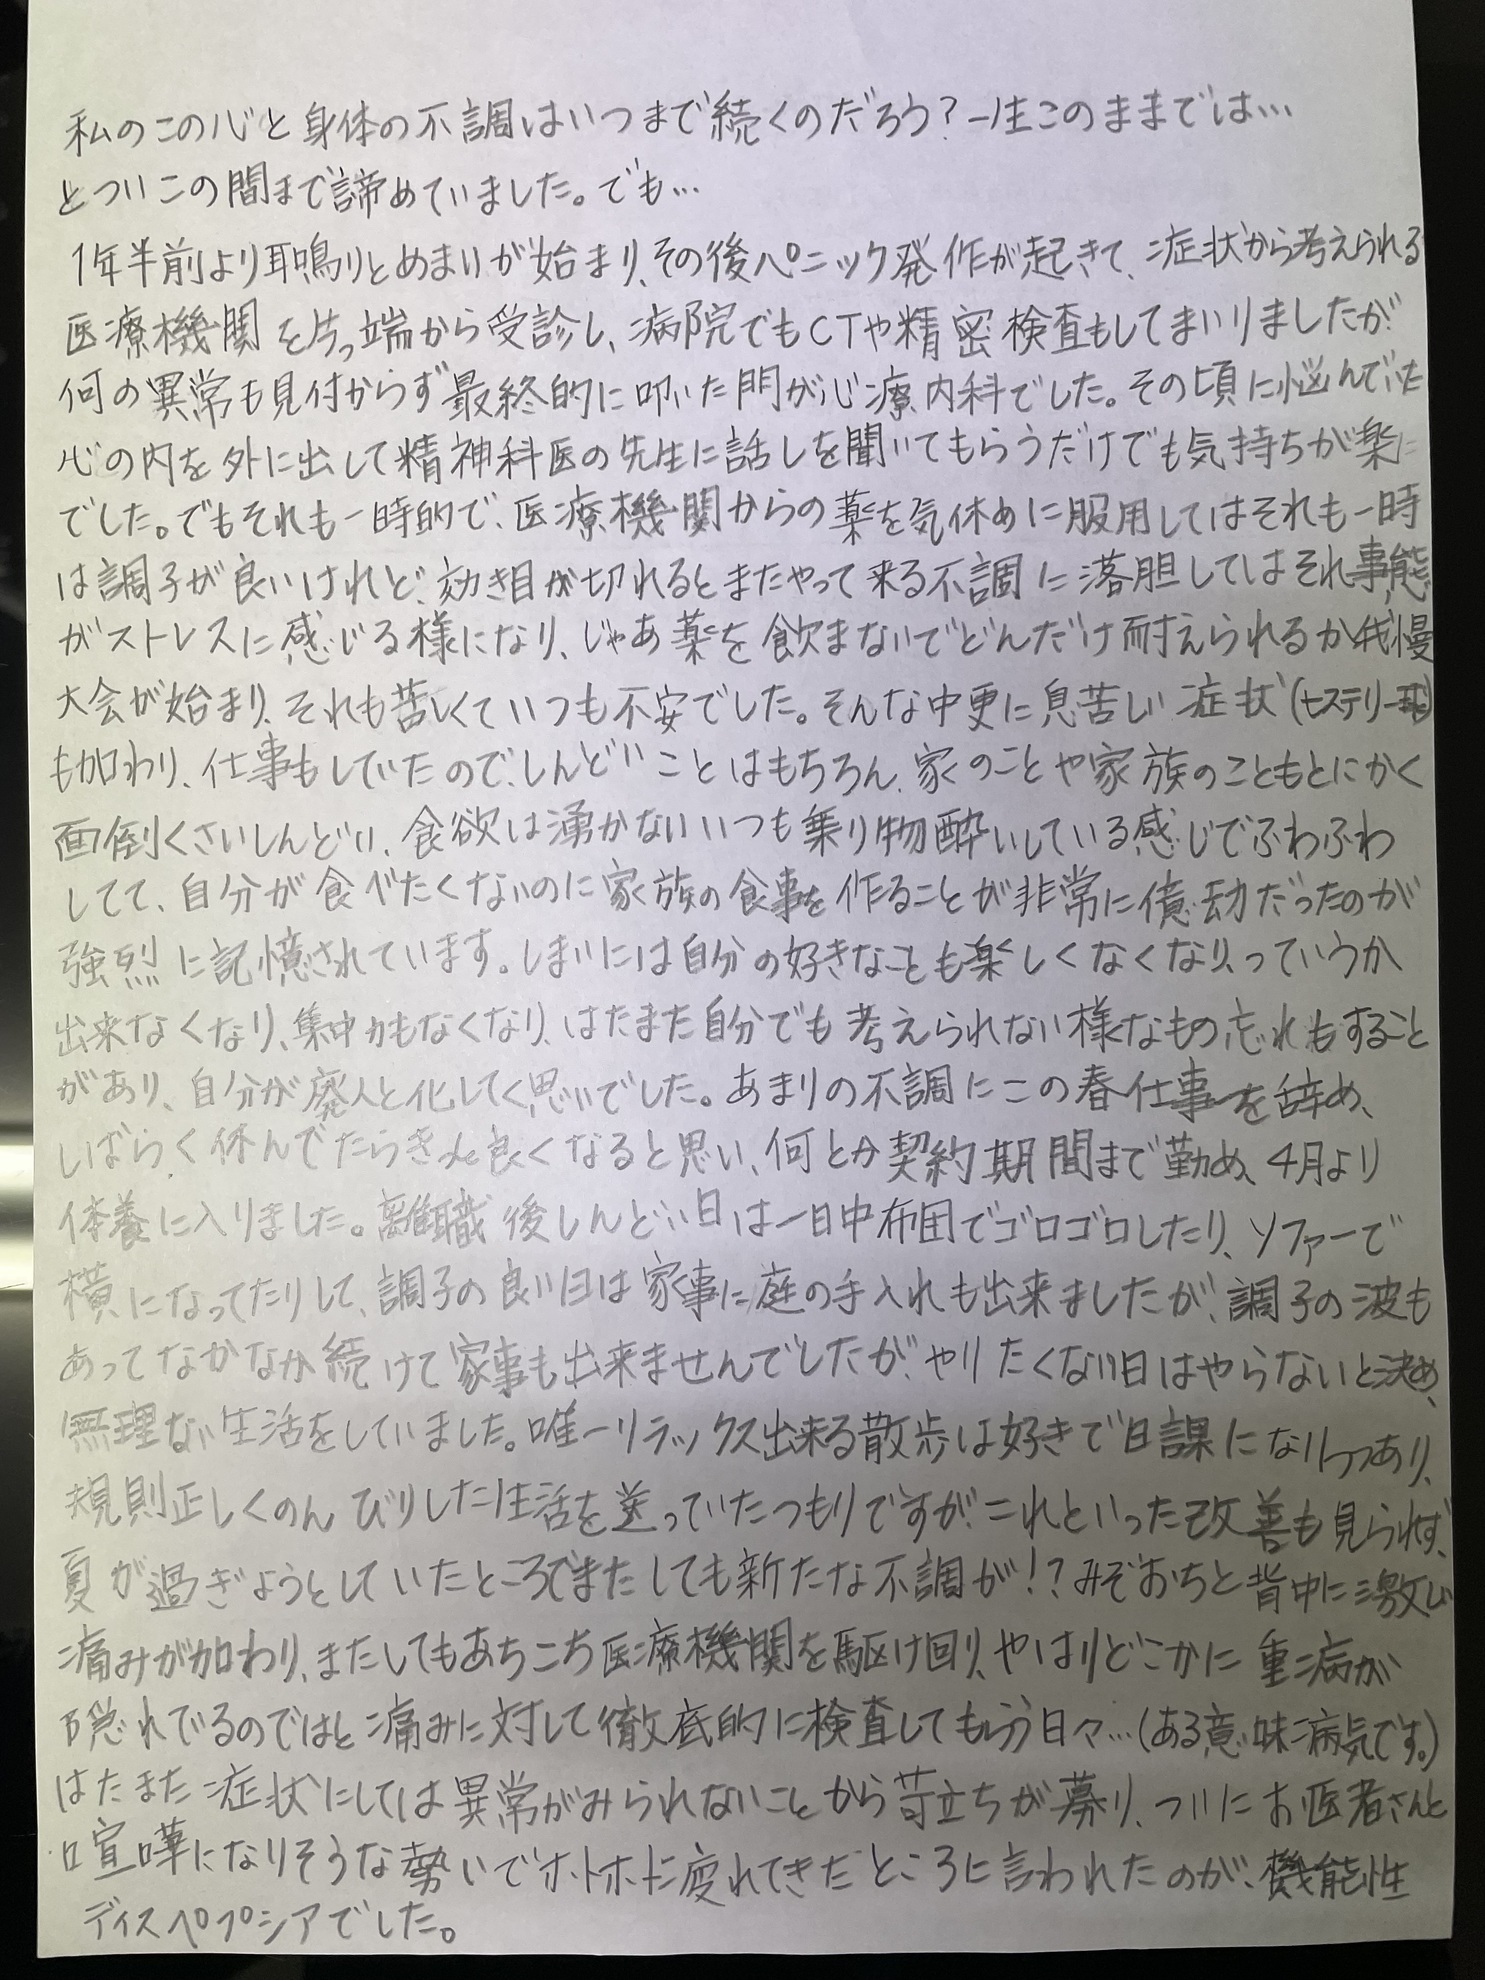 私のこの心と身体の不調はいつまで続くのだろう?一生このままでは…
とついこの間まで諦めていました。でも…
1年半前より耳鳴りとめまいが始まり、その後パニック発作が起きて、症状から考えられる
医療機関を片っ端から受診し、病院でもCTや精密検査もしてまいりましたが
何の異常も見付からず最終的に叩いた門が心療内科でした。その頃に悩んでいた
心の内を外に出して精神科医の先生に話しを聞いてもらうだけでも気持ちが楽に
でした。でもそれも一時的で、医療機関からの薬を気休めに服用してはそれも一時
は調子が良いけれど、効き目が切れるとまたやって来る不調に落胆してはそれ事態
がストレスに感じる様になり、じゃあ薬を飲まないでどんだけ耐えられるか我慢
大会が始まり、それも苦しくていつも不安でした。そんな中更に息苦しい症状(ヒステリー球)
も加わり、仕事もしていたので、しんどいことはもちろん、家のことや家族のこともとにかく
面倒くさいしんどい、食欲は湧かないいつも乗り物酔いしている感じでふわふわ
してて、自分が食べたくないのに家族の食事を作ることが非常に億劫だったのが
強烈に記憶されています。しまいには自分の好きなことも楽しくなくなり、っていうか
出来なくなり、集中力もなくなり、はたまた自分でも考えられない様なもの忘れもすること
があり、自分が廃人と化してく思いでした。あまりの不調にこの春仕事を辞め、
しばらく休んでたらきっと良くなると思い、何とか契約期間まで勤め、4月より
休養に入りました。離職後しんどい日は一日中布団でゴロゴロしたり、ソファーで
横になってたりして、調子の良い日は家事に庭の手入れも出来ましたが、調子の波も
あってなかなか続けて家事も出来ませんでしたが、やりたくない日はやらないと決め、
無理ない生活をしていました。唯一リラックス出来る散歩は好きで日課になりつつあり、
規則正しくのんびりした生活を送っていたつもりですが、これといった改善も見られず、
夏が過ぎようとしていたところでまたしても新たな不調が!?みぞおちと背中に激しい
痛みが加わり、またしてもあちこち医療機関を駆け回り、やはりどこかに重病が
隠れてるのではと痛みに対して徹底的に検査してもらう日々…(ある意味病気です。)
はたまた症状にしては異常がみられないことから苛立ちが募り、ついにお医者さんと
喧嘩になりそうな勢いでホトホトに疲れてきたところに言われたのが、機能性
ディスペプシアでした。